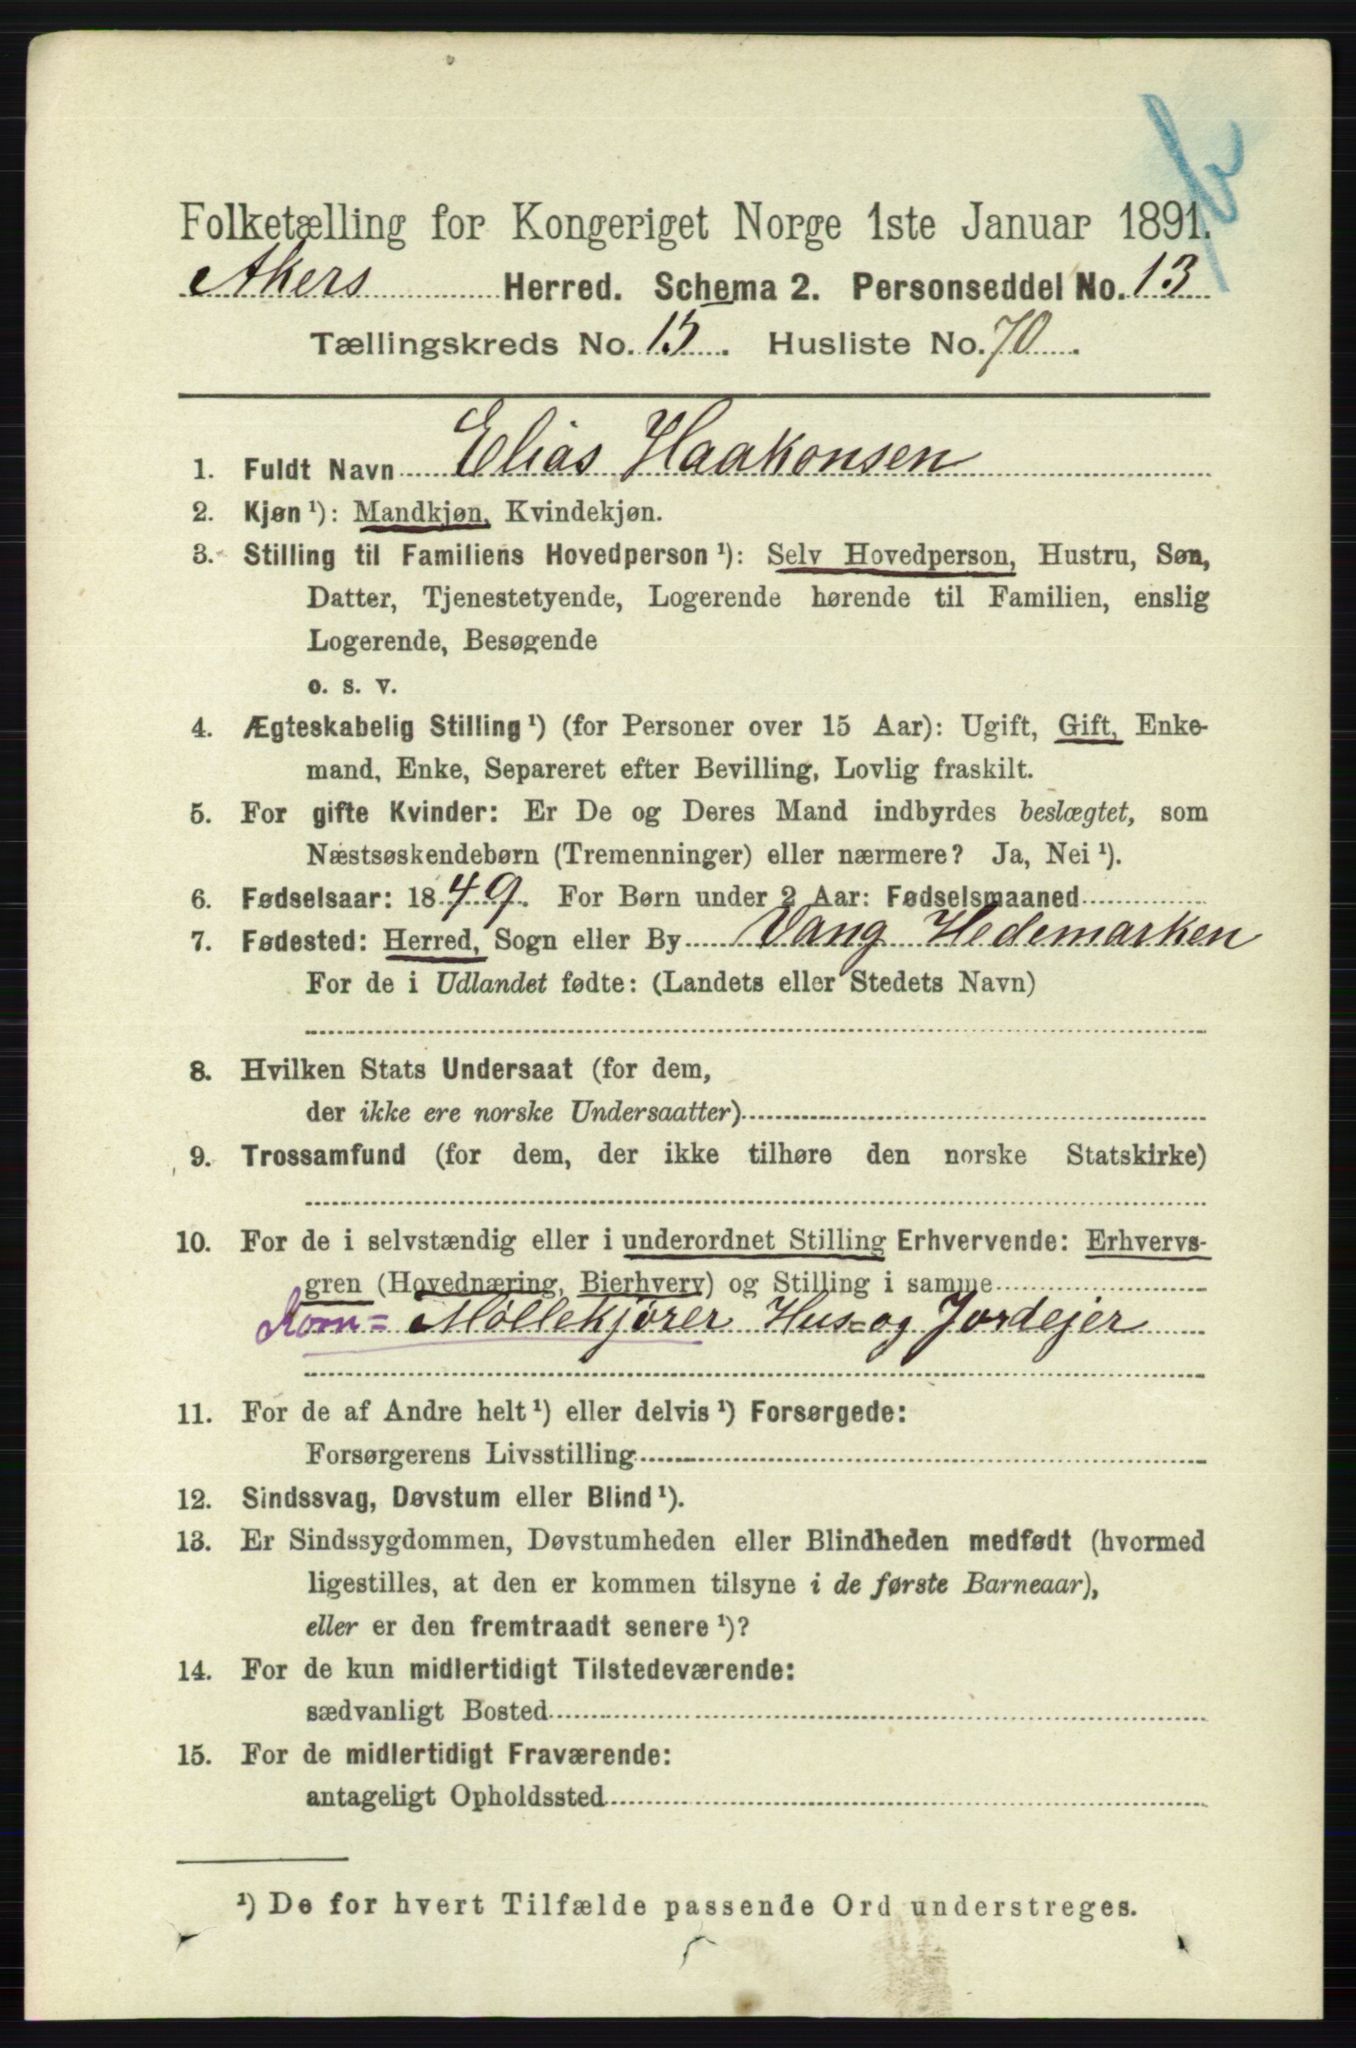 Folketælling for Kongeriget Norge 1ste Januar 1891.
Akers Herred. Schema 2. Personseddel No. 13
Tællingskreds No. 15. Husliste No. 70.
1. Fuldt Navn Elias Haakonsen
2. Kjøn ¹): Mandkjøn, Kvindekjøn.
3. Stilling til Familiens Hovedperson ¹): Selv Hovedperson, Hustru, Søn,
Datter, Tjenestetyende, Logerende hørende til Familien, enslig
Logerende, Besøgende
o. s. v.
4. Ægteskabelig Stilling ¹) (for Personer over 15 Aar): Ugift, Gift, Enke-
mand, Enke, Separeret efter Bevilling, Lovlig fraskilt.
5. For gifte Kvinder: Er De og Deres Mand indbyrdes beslægtet, som
Næstsøskendebørn (Tremenninger) eller nærmere? Ja, Nei ¹).
6. Fødselsaar: 1849. For Børn under 2 Aar: Fødselsmaaned
7. Fødested: Herred, Sogn eller By Vang Hedemarken
For de i Udlandet fødte: (Landets eller Stedets Navn)
8. Hvilken Stats Undersaat (for dem,
der ikke ere norske Undersaatter)
9. Trossamfund (for dem, der ikke tilhøre den norske Statskirke)
10. For de i selvstændig eller i underordnet Stilling Erhvervende: Erhvervs-
gren (Hovednæring, Bierhverv) og Stilling i samme
Korn= Møllekjører Hus=og Jordejer
11. For de af Andre helt ¹) eller delvis ¹) Forsørgede:
Forsørgerens Livsstilling
12. Sindssvag, Døvstum eller Blind ¹).
13. Er Sindssygdommen, Døvstumheden eller Blindheden medfødt (hvormed
ligestilles, at den er kommen tilsyne i de første Barneaar),
eller er den fremtraadt senere ¹)?
14. For de kun midlertidigt Tilstedeværende:
sædvanligt Bosted
15. For de midlertidigt Fraværende:
antageligt Opholdssted
¹) De for hvert Tilfælde passende Ord understreges.